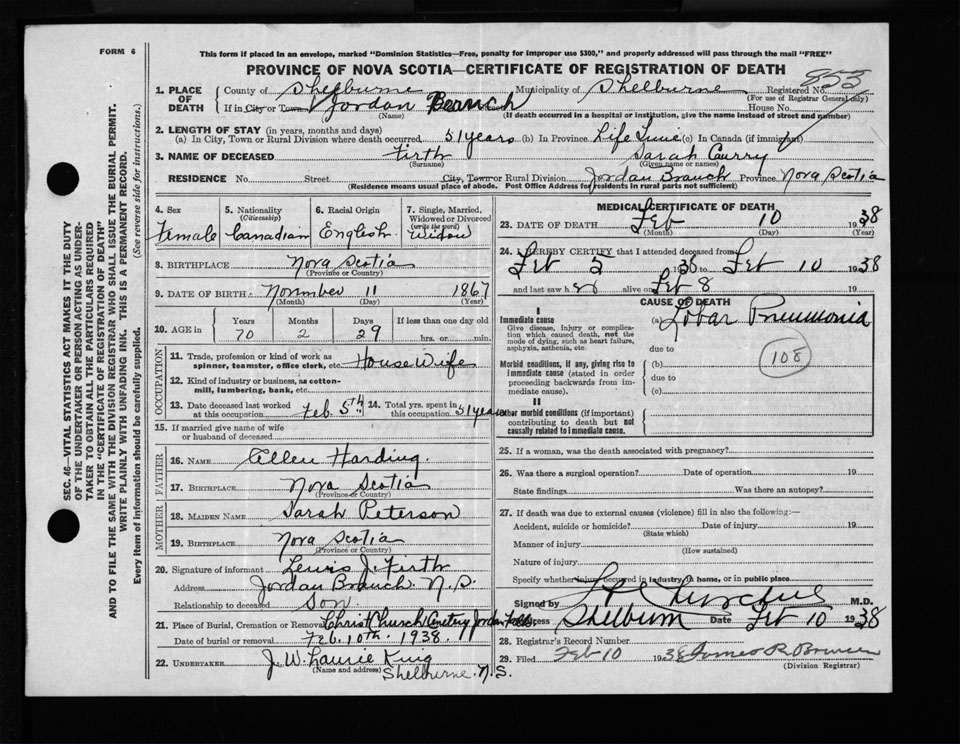 FORM 6
This form if placed in an envelope, marked "Dominion Statistics—Free, penalty for improper use $300," and properly addressed will pass through the mail "FREE"
PROVINCE OF NOVA SCOTIA—CERTIFICATE OF REGISTRATION OF DEATH
853
1. PLACE OF DEATH
County of Shelburne Municipality of Shelburne Registered No.
(For use of Registrar General only)
If in City or Town Jordan Branch House No.
(Name) (If death occurred in a hospital or institution, give the name instead of street and number)
2. LENGTH OF STAY (in years, months and days)
(a) In City, Town or Rural Division where death occurred 51 years (b) In Province Life Time (c) In Canada (if immigrant)
3. NAME OF DECEASED Firth Sarah Curry
(Surname) (Given name or names)
RESIDENCE No. Street City, Town or Rural Division Jordan Branch Province Nova Scotia
(Residence means usual place of abode. Post Office Address for residents in rural parts not sufficient)
4. Sex Female
5. Nationality (Citizenship) Canadian
6. Racial Origin English
7. Single, Married, Widowed or Divorced (write the word) Widow
8. BIRTHPLACE Nova Scotia
(Province or Country)
9. DATE OF BIRTH November 11 1867
(Month) (Day) (Year)
10. AGE in Years Months Days If less than one day old
70 2 29 hrs. or min.
OCCUPATION
11. Trade, profession or kind of work as spinner, teamster, office clerk, etc. House Wife
12. Kind of industry or business, as cotton-mill, lumbering, bank, etc.
13. Date deceased last worked at this occupation Feb. 5th
14. Total yrs. spent in this occupation 51 years
15. If married give name of wife or husband of deceased
FATHER
16. NAME Allen Harding
17. BIRTHPLACE Nova Scotia
(Province or Country)
MOTHER
18. MAIDEN NAME Sarah Peterson
19. BIRTHPLACE Nova Scotia
(Province or Country)
20. Signature of informant Lewis J. Firth
Address Jordan Branch N.S.
Relationship to deceased Son
21. Place of Burial, Cremation or Removal Christ Church Cemetery Jordan Falls
Date of burial or removal Feb. 10th. 1938.
22. UNDERTAKER J. W. Laurie King
(Name and address) Shelburne. N.S.
MEDICAL CERTIFICATE OF DEATH
23. DATE OF DEATH Feb 10 1938
(Month) (Day) (Year)
24. I HEREBY CERTIFY that I attended deceased from
Feb 5 1938 to Feb 10 1938
and last saw her alive on Feb 8
CAUSE OF DEATH
I
Immediate cause (a) Lobar Pneumonia
Give disease, injury or complication which caused death, not the mode of dying, such as heart failure, asphyxia, asthenia, etc.
due to
108
Morbid conditions, if any, giving rise to immediate cause (stated in order proceeding backwards from immediate cause).
(b)
due to
(c)
II
Other morbid conditions (if important) contributing to death but not causally related to immediate cause.
25. If a woman, was the death associated with pregnancy?
26. Was there a surgical operation? Date of operation 19
State findings Was there an autopsy?
27. If death was due to external causes (violence) fill in also the following:—
Accident, suicide or homicide? Date of injury 19
(State which)
Manner of injury
(How sustained)
Nature of injury
Specify whether injury occurred in industry, in home, or in public place
Signed by Churchill M.D.
Address Shelburn Date Feb 10 1938
28. Registrar's Record Number
29. Filed Feb 10 1938 James R. Bruce
(Division Registrar)
SEC. 46—VITAL STATISTICS ACT MAKES IT THE DUTY
OF THE UNDERTAKER OR PERSON ACTING AS UNDER-
TAKER TO OBTAIN ALL THE PARTICULARS REQUIRED
IN THE "CERTIFICATE OF REGISTRATION OF DEATH"
AND TO FILE THE SAME WITH THE DIVISION REGISTRAR WHO SHALL ISSUE THE BURIAL PERMIT.
WRITE PLAINLY WITH UNFADING INK. THIS IS A PERMANENT RECORD.
Every item of information should be carefully supplied. (See reverse side for instructions.)